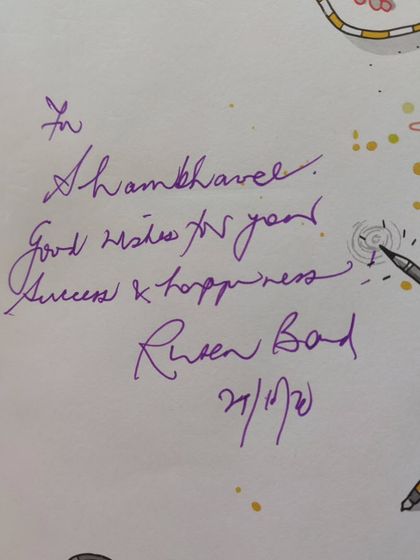 For
Shambhavee.
Good wishes for your
success & happiness
Ruskin Bond
29/10/20